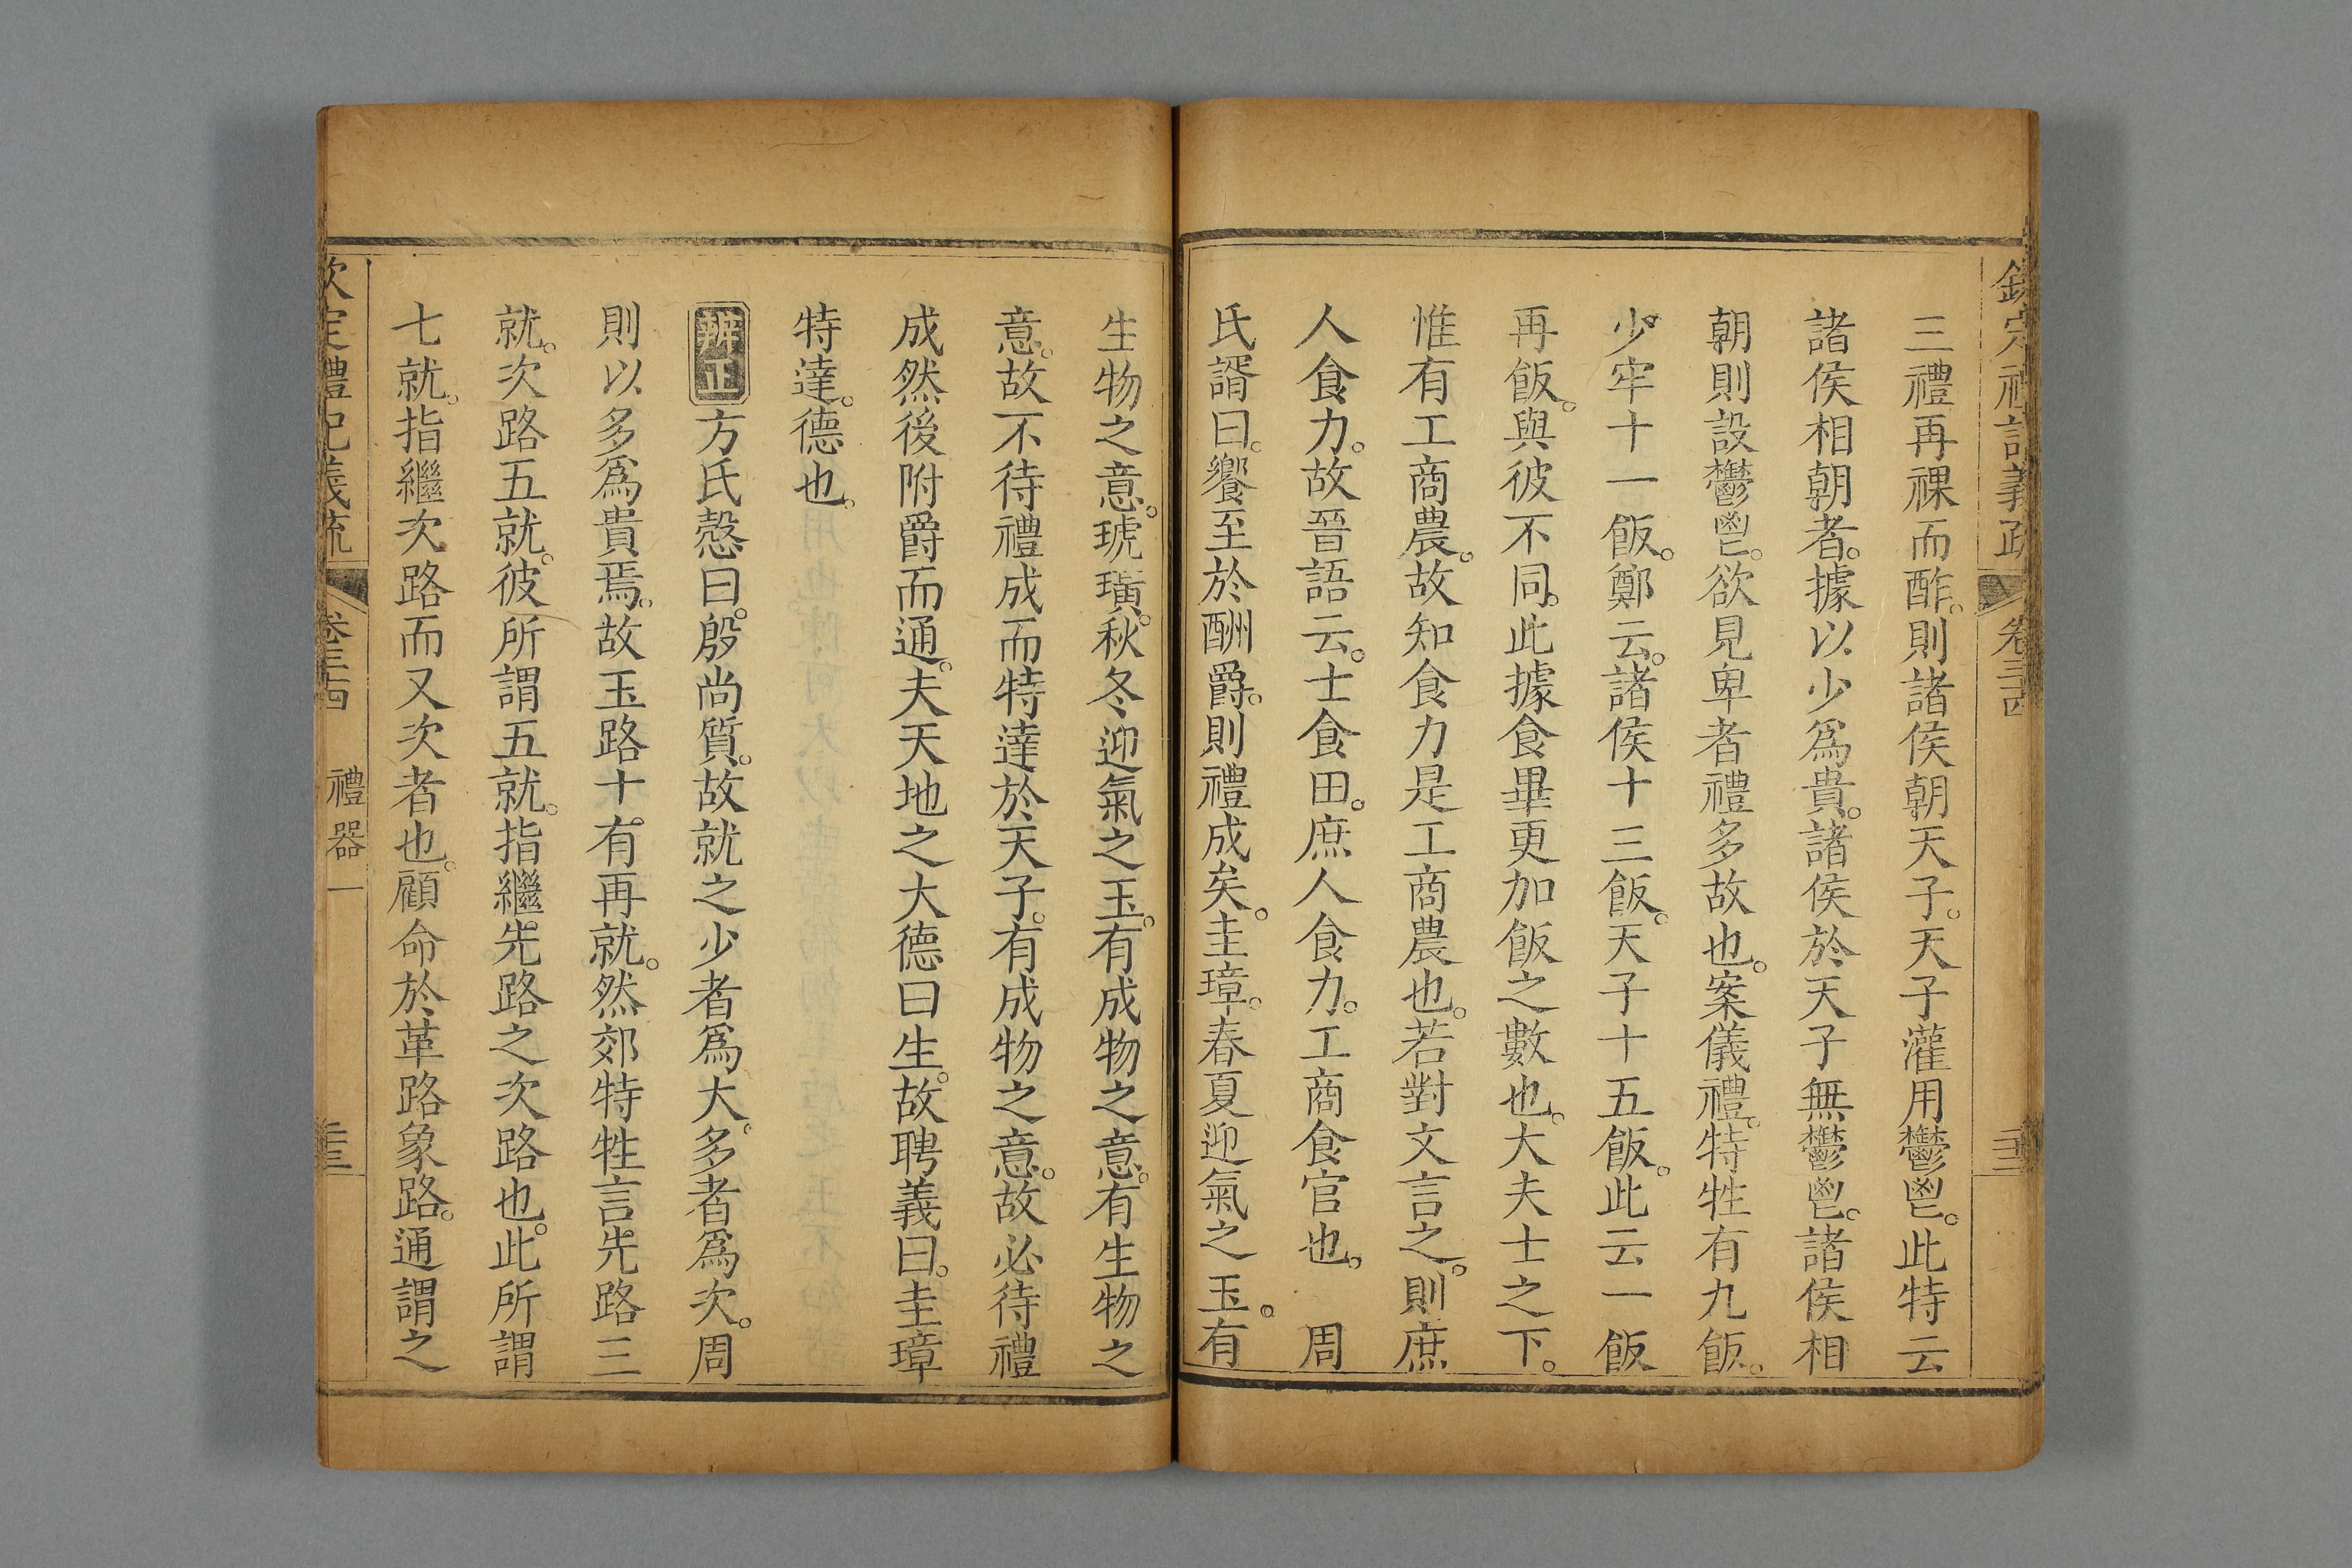 欽定禮記義疏 卷三十四
三禮再祼而酢。則諸侯朝天子。天子灌用鬱鬯。此特云
諸侯相朝者。據以少爲貴。諸侯於天子無鬱鬯。諸侯相
朝則設鬱鬯。欲見卑者禮多故也。案儀禮。特牲有九飯。
少牢十一飯。鄭云。諸侯十三飯。天子十五飯。此云一飯
再飯。與彼不同。此據食畢更加飯之數也。大夫士之下。
惟有工商農。故知食力是工商農也。若對文言之。則庶
人食力。故晉語云。士食田。庶人食力。工商食官也。 周
氏諝曰。饗至於酬爵。則禮成矣。圭璋。春夏迎氣之玉。有
生物之意。琥璜。秋冬迎氣之玉。有成物之意。有生物之
意。故不待禮成而特達於天子。有成物之意。故必待禮
成然後附爵而通。夫天地之大德曰生。故聘義曰。圭璋
特達。德也。
辨正方氏慤曰。殷尚質。故就之少者爲大。多者爲次。周
則以多爲貴焉。故玉路十有再就。然郊特牲言先路三
就。次路五就。彼所謂五就。指繼先路之次路也。此所謂
七就。指繼次路而又次者也。顧命於革路象路。通謂之
欽定禮記義疏 卷三十四 禮器一